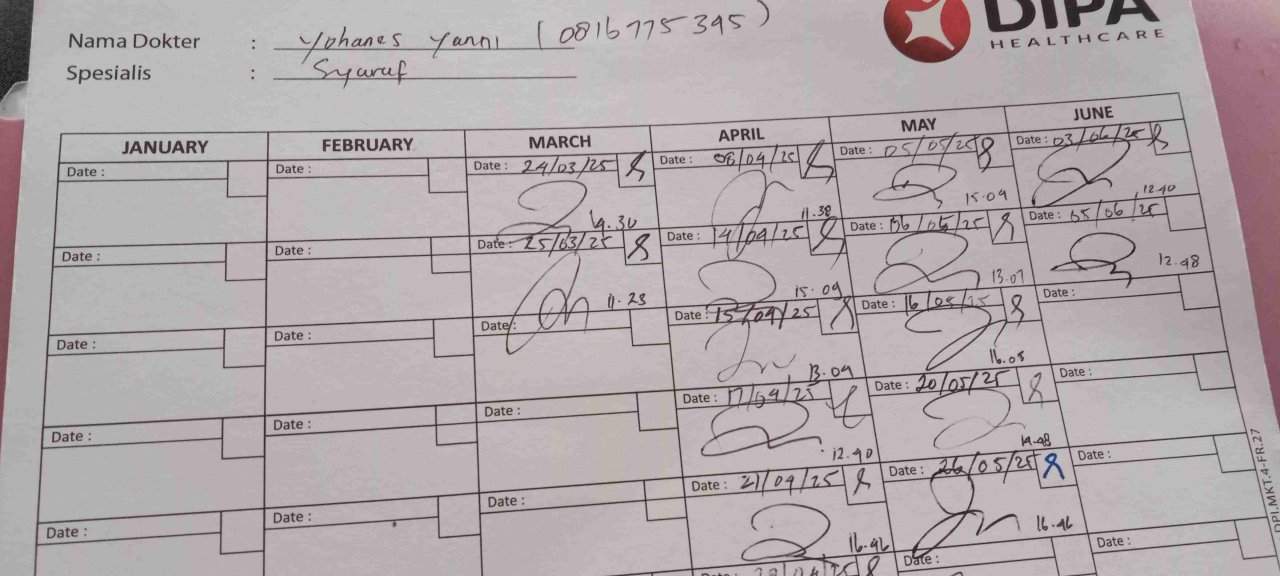 DIPA
HEALTHCARE
Nama Dokter : Yohanes Yanni (0816775395)
Spesialis : Syaraf
JANUARY FEBRUARY MARCH APRIL MAY JUNE
Date : Date : Date : 24/03/25 Date : 08/04/25 Date : 05/05/25 Date : 03/06/25
11.38 15.09 12.40
Date : Date : Date : 25/03/25 Date : 14/04/25 Date : 06/05/25 Date : 05/06/25
11.23 15.09 13.07 12.48
Date : Date : Date : Date : 15/04/25 Date : 16/05/25 Date :
13.09 16.05
Date : Date : Date : Date : 17/04/25 Date : 20/05/25 Date :
12.40 14.48
Date : Date : Date : Date : 21/04/25 Date : 26/05/25 Date :
16.46 16.46
Date : Date : Date :
DPI.MKT.4-FR.27